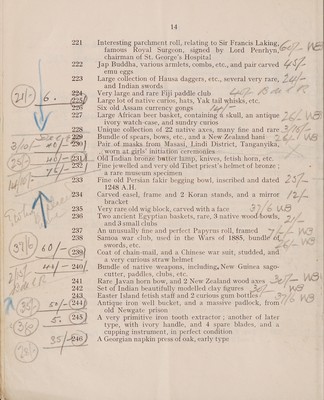 14
221 Interesting parchment roll, relating to Sir Francis Laking,
famous Royal Surgeon, signed by Lord Penrhyn,
chairman of St. George's Hospital
222 Jap Buddha, various armlets, combs, etc., and pair carved 45/-
emu eggs
223 Large collection of Hausa daggers, etc., several very rare, 24/-
and Indian swords
224 Very large and rare Fiji paddle club
225 Large lot of native curios, hats, Yak tail whisks, etc.
226 Six old Assam currency gongs 14/-
227 Large African beer basket, containing 6 skull, an antique
ivory watch-case, and sundry curios
228 Unique collection of 22 native axes, many fine and rare
229 Bundle of spears, bows, etc., and a New Zealand hani
230 Pair of masks from Masasi, Lindi District, Tanganyika,
worn at girls' initiation ceremonies
231 Old Indian bronze butter lamp, knives, fetish horn, etc.
232 Fine jewelled and very old Tibet priest's helmet of bronze;
a rare museum specimen
233 Fine old Persian fakir begging bowl, inscribed and dated 25/-
1248 A.H.
234 Carved easel, frame and 2 Koran stands, and a mirror 12/-
bracket
235 Very rare old wig block, carved with a face 37/6 WB
236 Two ancient Egyptian baskets, rare, 3 native wood bowls, 21/-
and 3 small clubs
237 An unusually fine and perfect Papyrus roll, framed
238 Samoa war club, used in the Wars of 1885, bundle of
swords, etc.
239 Coat of chain-mail, and a Chinese war suit, studded, and
a very curious straw helmet
240 Bundle of native weapons, including, New Guinea sago-
cutter, paddles, clubs, etc.
241 Rare Javan horn bow, and 2 New Zealand wood axes 30/- WB
242 Set of Indian beautifully modelled clay figures 30/- WB
243 Easter Island fetish staff and 2 curious gum bottles 37/6 WB
244 Antique iron well bucket, and a massive padlock, from
old Newgate prison
245 A very primitive iron tooth extractor; another of later
type, with ivory handle, and 4 spare blades, and a
cupping instrument, in perfect condition
246 A Georgian napkin press of oak, early type